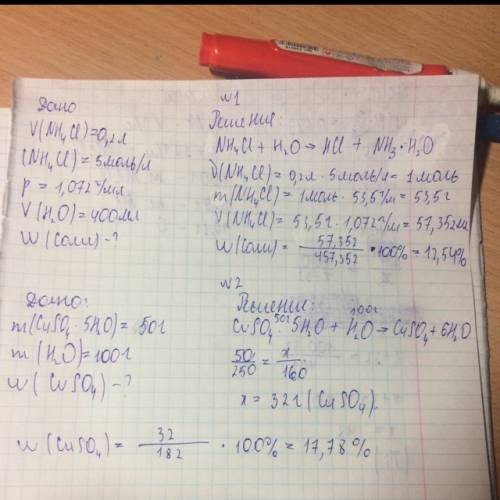 №1
Дано
V(NH₄Cl)=0,2л
C(NH₄Cl)=5моль/л
p=1,072г/мл
V(H₂O)=400мл
W(соли)-?
Решение:
NH₄Cl+H₂O→HCl+NH₃·H₂O
ν(NH₄Cl)=0,2л·5моль/л=1моль
m(NH₄Cl)=1моль·53,5г/м=53,5г
V(NH₄Cl)=53,5г·1,072г/м=57,352мл
W(соли)=57,352/457,352·100%=12,54%
№2
Дано:
m(CuSO₄·5H₂O)=50г
m(H₂O)=100г
w(CuSO₄)-?
Решение:
50г 100г
CuSO₄·5H₂O+H₂O→CuSO₄+6H₂O
50/250=x/160
x=32г(CuSO₄)
w(CuSO₄)=32/182·100%=17,78%